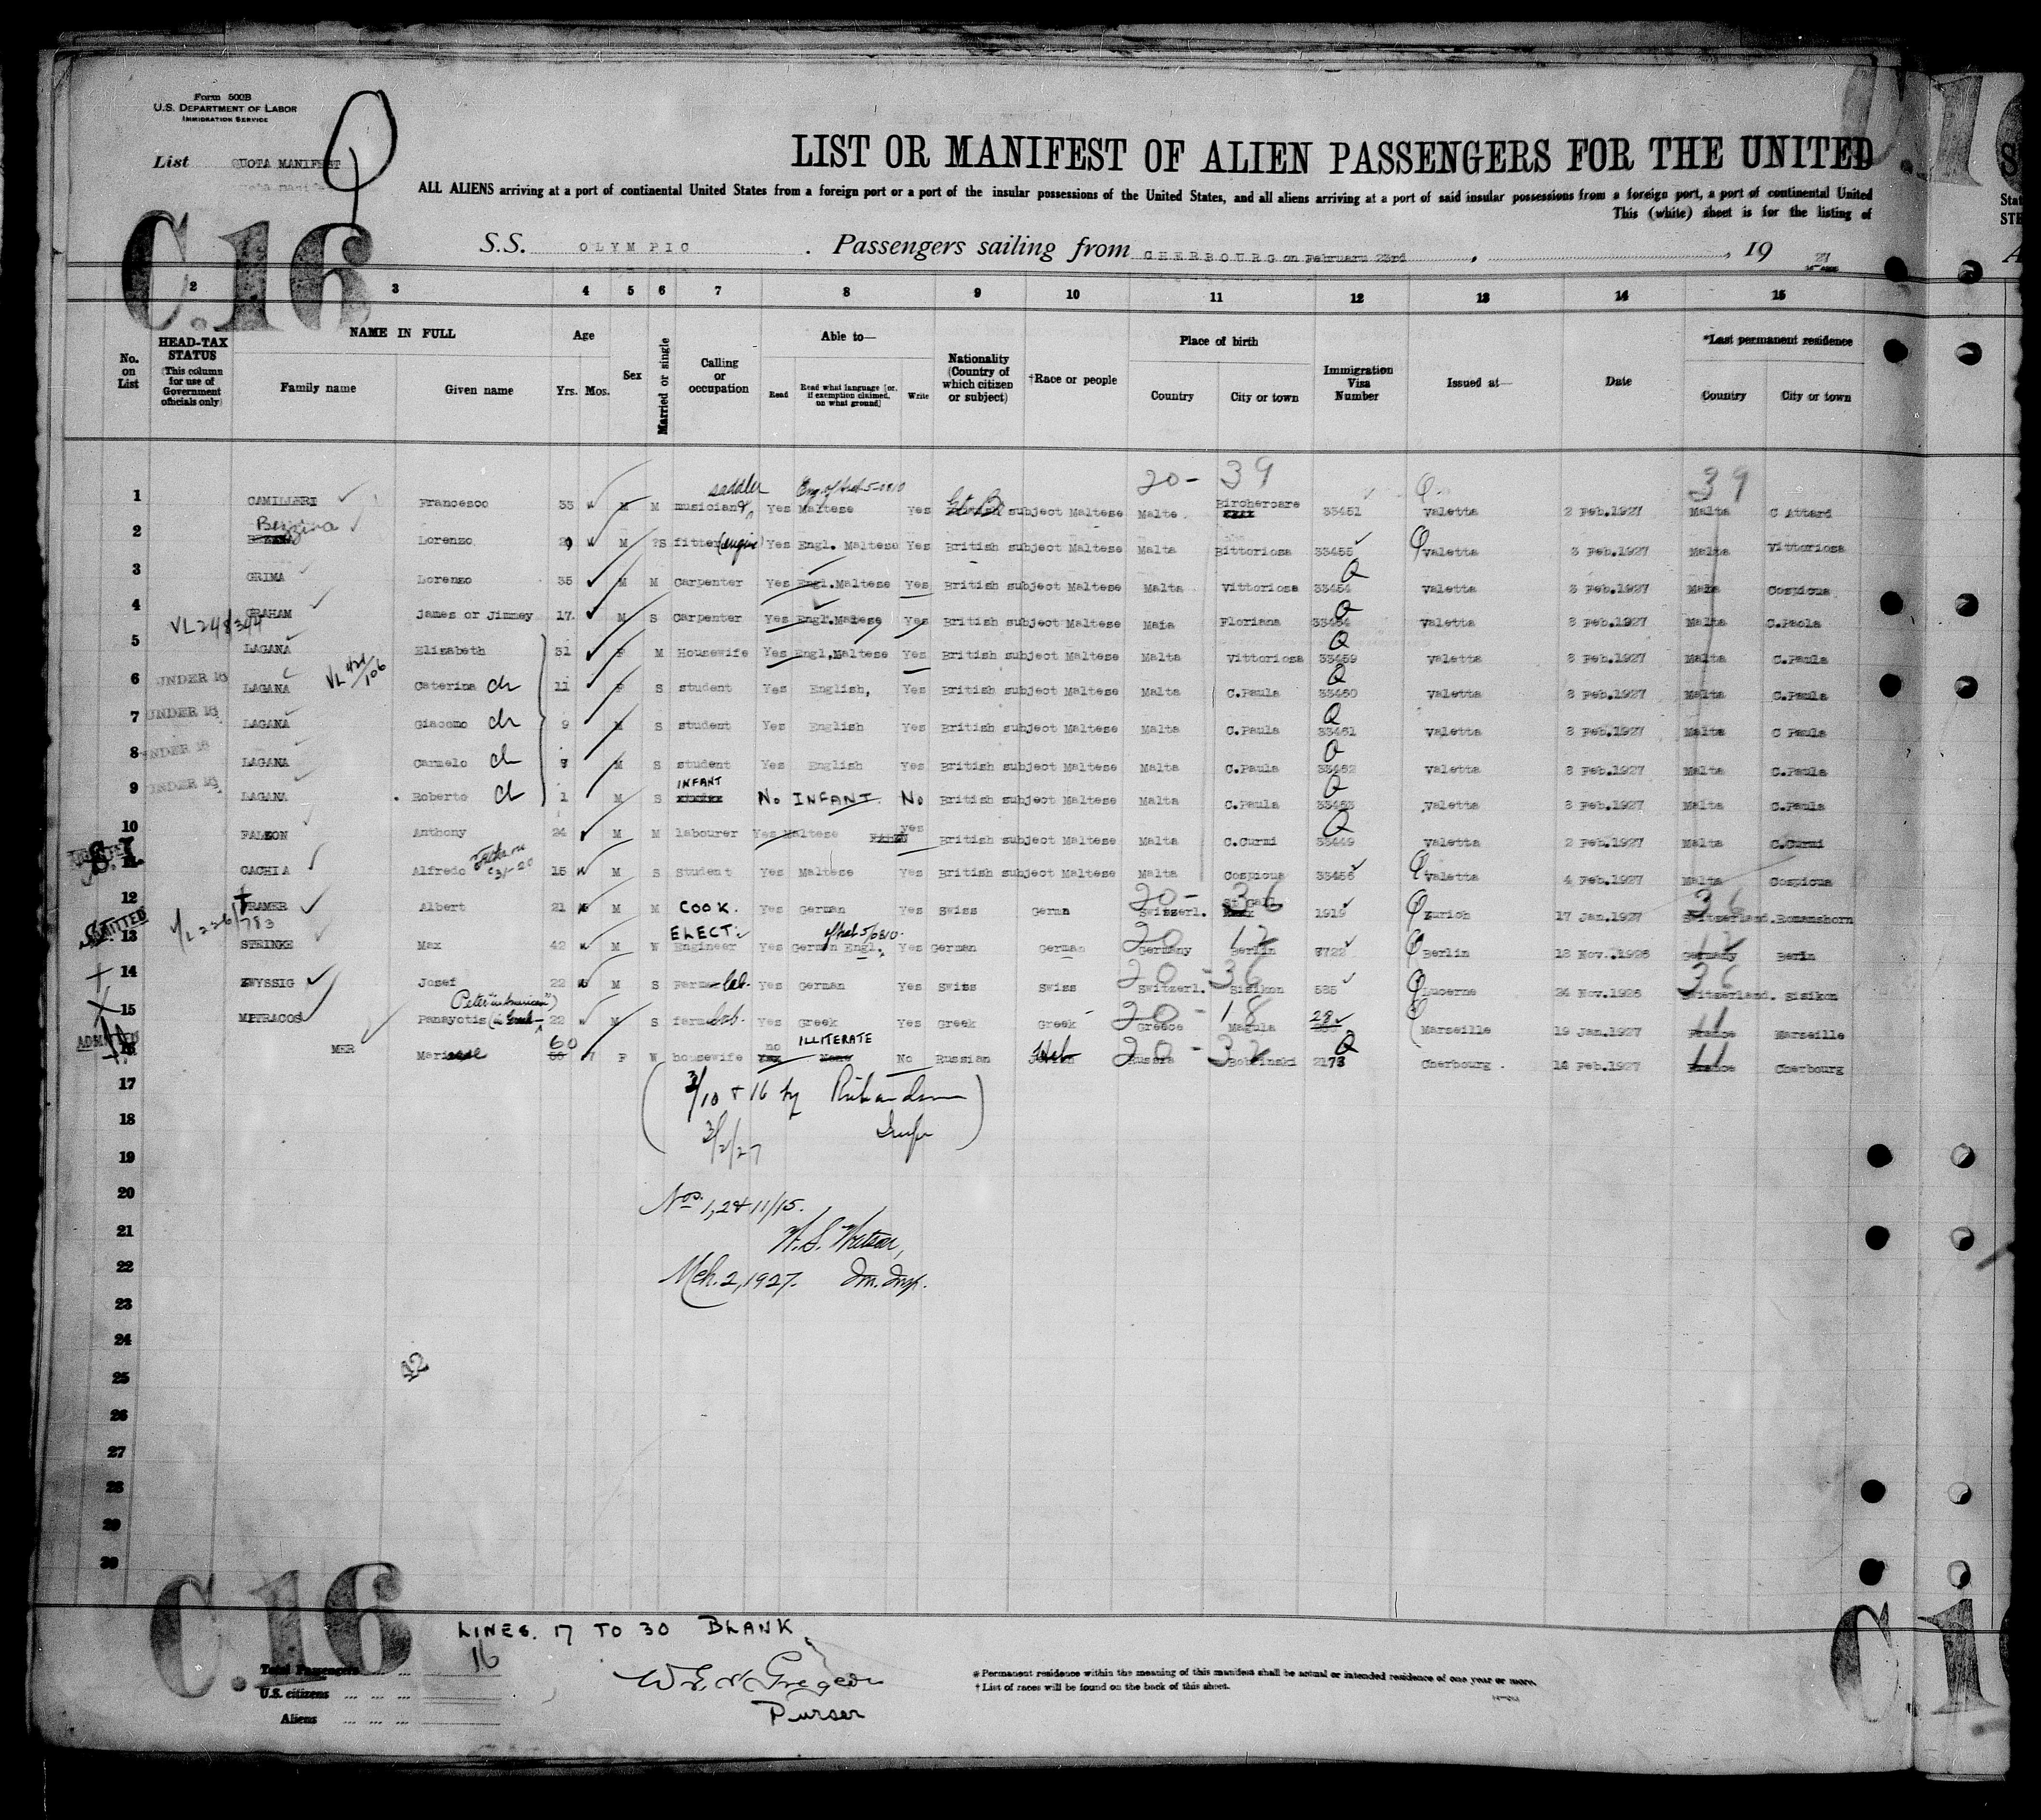 Form 500B
U.S. DEPARTMENT OF LABOR
IMMIGRATION SERVICE
List QUOTA MANIFEST
C.16
LIST OR MANIFEST OF ALIEN PASSENGERS FOR THE UNITED
ALL ALIENS arriving at a port of continental United States from a foreign port or a port of the insular possessions of the United States, and all aliens arriving at a port of said insular possessions from a foreign port, a port of continental United
This (white) sheet is for the listing of
S.S. OLYMPIC. Passengers sailing from CHERBOURG on February 23rd, 19 27
2 3 4 5 6 7 8 9 10 11 12 13 14 15
No. on List
HEAD-TAX STATUS (This column for use of Government officials only)
NAME IN FULL Family name Given name
Age Yrs. Mos.
Sex
Married or single
Calling or occupation
Able to— Read Read what language [or, if exemption claimed, on what ground] Write
Nationality (Country of which citizen or subject)
†Race or people
Place of birth Country City or town
Immigration Visa Number
Issued at—
Date
*Last permanent residence Country City or town
20- 39 39
saddler
1 CAMILLERI Francesco 33 M M musician Yes Maltese Yes subject Maltese Malte Birchercare 33451 Valetta 2 Feb.1927 Malta C Attard
2 Lorenzo M S fitter (engine) Yes Engl. Maltese Yes British subject Maltese Malta Bittoriosa 33455 Valetta 3 Feb.1927 Malta Vittoriosa
3 GRIMA Lorenzo 35 M M Carpenter Yes Engl.Maltese Yes British subject Maltese Malta Vittoriosa 33454 Valetta 3 Feb.1927 Malta Cospicua
4 GRAHAM James or Jimmey 17 M S Carpenter Yes Engl.Maltese Yes British subject Maltese Malta Floriana Valetta 8 Feb.1927 Malta C.Paola
VL 248344
5 LAGANA Elisabeth 31 F M Housewife Yes Engl.Maltese Yes British subject Maltese Malta Vittoriosa 33459 Valetta 8 Feb.1927 Malta C.Paula
6 UNDER 16 LAGANA Caterina ch 11 F S student Yes English, Yes British subject Maltese Malta C.Paula 33460 Valetta 8 Feb.1927 Malta C.Paula
7 UNDER 16 LAGANA Giacomo ch 9 M S student Yes English Yes British subject Maltese Malta C.Paula 33461 Valetta 8 Feb.1927 Malta C Paula
8 UNDER 16 LAGANA Carmelo ch M S student Yes English Yes British subject Maltese Malta C.Paula 33462 Valetta 8 Feb.1927 Malta C.Paula
INFANT
9 UNDER 16 LAGANA Roberto ch 1 M S No INFANT No British subject Maltese Malta C.Paula 33463 Valetta 8 Feb.1927 Malta C.Paula
10 FALZON Anthony 24 M M labourer Yes Maltese yes British subject Maltese Malta C.Curmi 33449 Valetta 2 Feb.1927 Malta C.Curmi
11 CACHIA Alfredo 15 M S Student Yes Maltese Yes British subject Maltese Malta Cospicua 33456 Valetta 4 Feb.1927 Malta Cospicua
20- 36 36
12 Albert 21 M M COOK. Yes German Yes Swiss Germn Switzerl. St Gall 1919 Zurich 17 Jan.1927 Switzerland. Romanshorn
ADMITTED
ELECT.
20 12 12
13 STEINKE Max 42 M W Engineer Yes German Engl. Yes German German Germany Berlin Berlin 18 Nov.1926 Germany Berin
20-36 36
14 ZWYSSIG Josef 22 M S Farm lab. Yes German Yes Swiss Swiss Switzerl. Sisikon 585 Lucerne 24 Nov.1926 Switzerland. Sisikon
20-18 11
15 MITRACOS Panayotis 22 M S farm lab. Yes Greek Yes Greek Greek Greece Magula 28 Marseille 19 Jan.1927 France Marseille
ADMITTED
60 no ILLITERATE 20-32 11
16 MER F W housewife No Russian Heb Russia 2173 Cherbourg. Feb.1927 France Cherbourg
17
(3/10 + 16 by Richardson
18
3/2/27 Insp)
19
20
Nos. 1, 2 & 11/15.
21
W. S. Watson,
22
Mch. 2, 1927. Im. Insp.
23
24
25
26
27
28
29
30
C.16
LINES. 17 TO 30 BLANK
Total Passengers ... ... 16
U.S. citizens ... ... ...
Aliens ... ... ...
Purser
* Permanent residence within the meaning of this manifest shall be actual or intended residence of one year or more.
† List of races will be found on the back of this sheet.